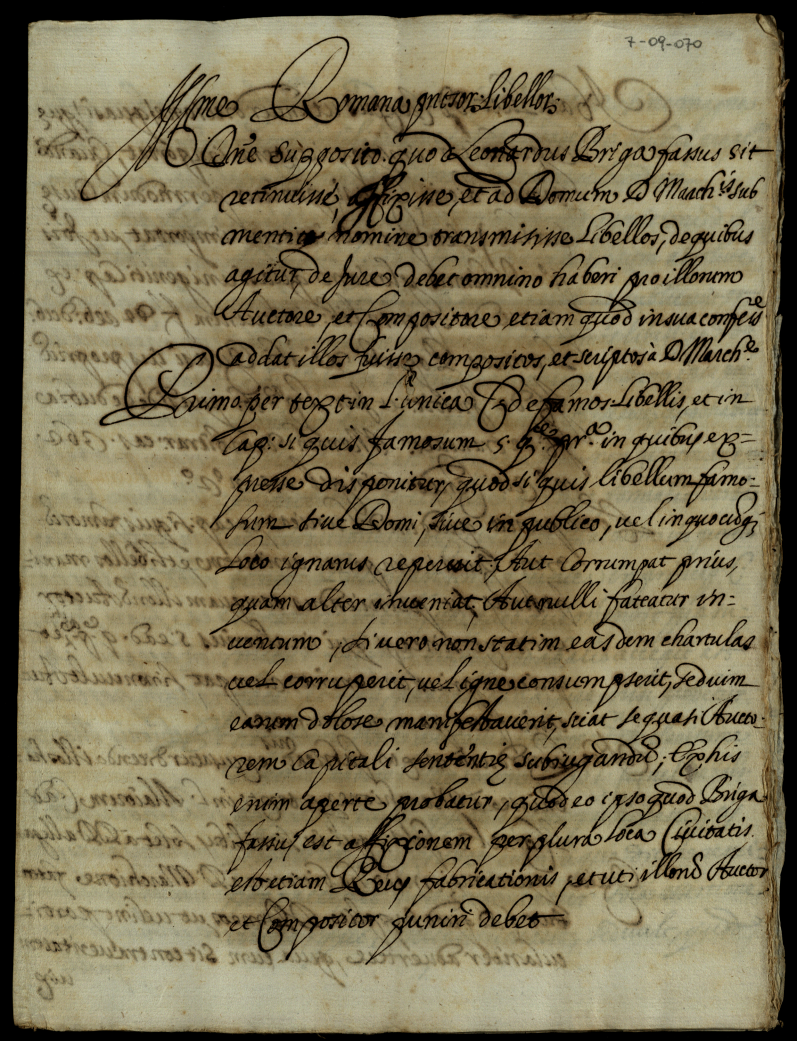 7-09-070
Romana pntsor: Libellor:
One supposito quod Leonardus Briga fassus sit
retinuisse, affixisse, et ad Domum D March:is sub
mentito nomine transmisisse Libellos, de quibus
agitur, de Jure debet omnino haberi pro illorum
Auctore, et Compositore etiam quod in sua confess:e
addat illos fuisse compositos, et scriptos à D March:e
Primo per text in l: unica C de famos: Libellis, et in
Cap: si quis famosum 5. q.e pr.a in quibus ex=
presse disponitur, quod si quis libellum famo=
sum sive Domi, sive in publico, vel in quocumq;
Loco ignarus repererit, Aut Corrumpat prius,
quam alter inveniat, Aut nulli fateatur in=
ventum, si vero non statim easdem chartulas
vel corruperit, vel igne consumpserit, sed vim
earum dolose manifestaverit, sciat se quasi Aucto=
rem Capitali sententię subiugandū; Ex his
enim aperte probatur, quod eo ipso quod Briga
fassus est affixionem per plura loca Civitatis
est etiam Reus fabricationis, et uti illorū Auctor
et Compositor puniri debet